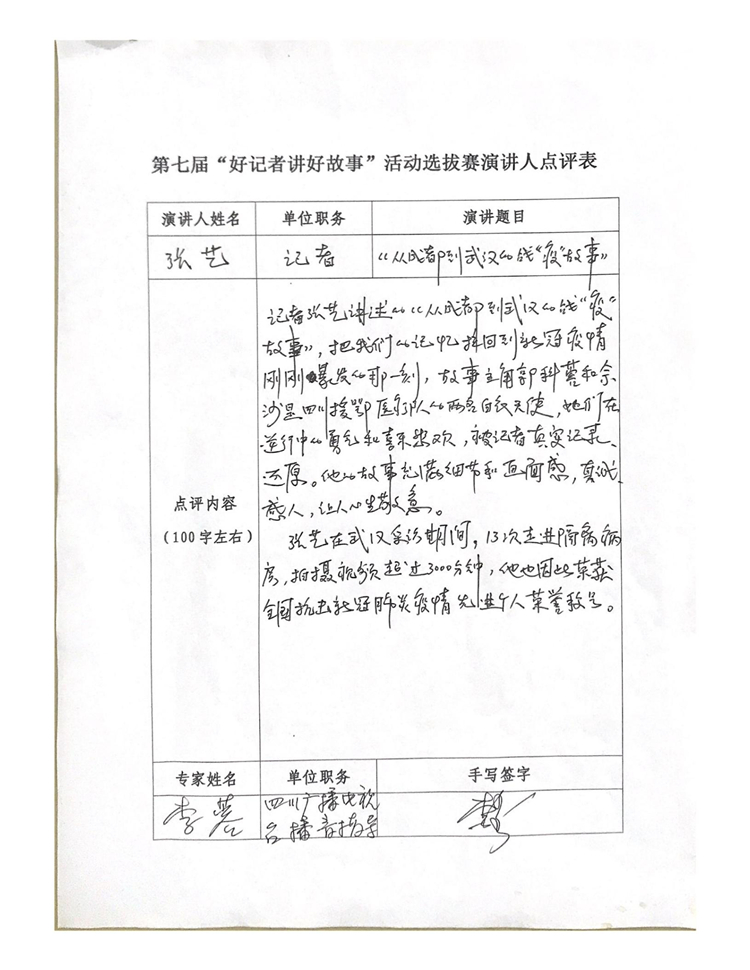 第七届“好记者讲好故事”活动选拔赛演讲人点评表
演讲人姓名 单位职务 演讲题目
张艺 记者 《从成都到武汉的战“疫”故事》
点评内容
(100字左右)
记者张艺讲述的《从成都到武汉的战“疫”
故事》，把我们的记忆拉回到新冠疫情
刚刚爆发的那一刻，故事主角郭科蓉和佘
沙是四川援鄂医疗队的两名白衣天使，她们在
逆行中的勇气和喜乐悲欢，被记者真实记录、
还原。他的故事充满细节和画面感，真诚、
感人，让人心生敬意。
张艺在武汉采访期间，13次走进隔离病
房，拍摄视频超过3000分钟，他也因此荣获
全国抗击新冠肺炎疫情先进个人荣誉称号。
专家姓名 单位职务 手写签字
李蓉 四川广播电视
台播音指导